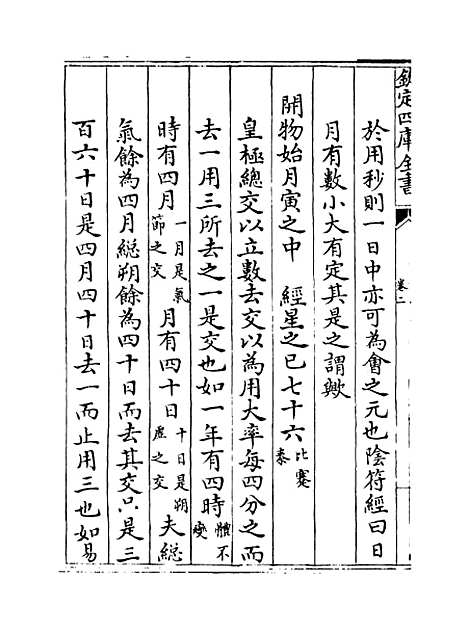 欽定四庫全書
卷二
於用秒則一日中亦可為會之元也陰符經曰日
月有數小大有定其是之謂歟
開物始月寅之中 經星之巳七十六比蹇泰
皇極總交以立數去交以為用大率每四分之而
去一用三所去之一是交也如一年有四時體不變
時有四月一月是氣節之交月有四十日十日是朔虛之交夫総
氣餘為四月総朔餘為四十日而去其交只是三
百六十日是四月四十日去一而止用三也如易